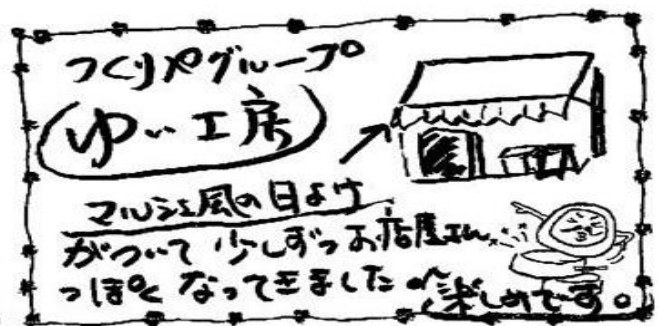 つくりやグループ
ゆい工房
マルシェ風の日よけ
がついて少しずつお店屋さん
っぽくなってきました
楽しみです。